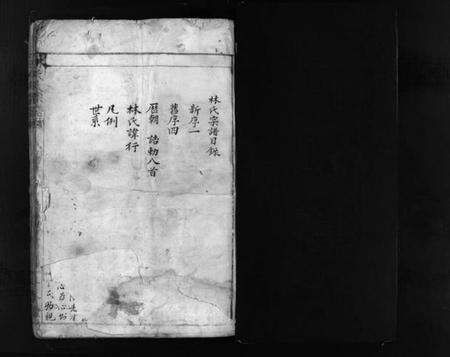 林氏宗譜目錄
新序一
舊序四
歷朝 誥勅八首
林氏諱行
凡例
世系